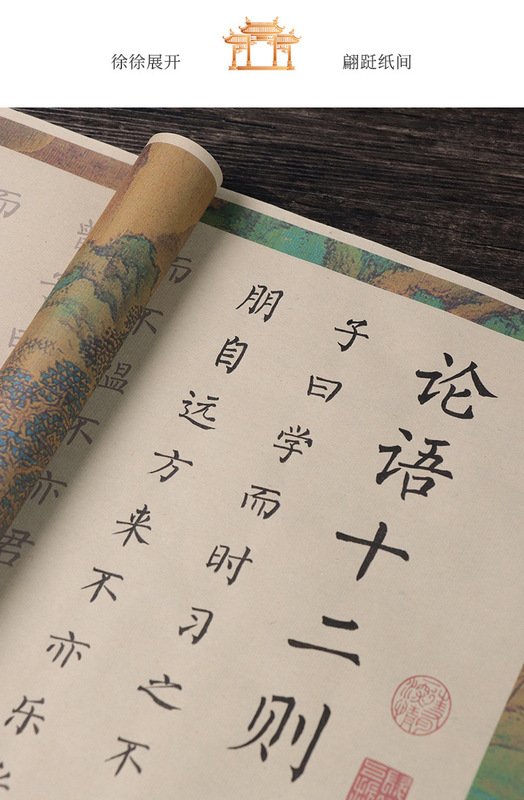 徐徐展开
翩跹纸间
论语十二则
子曰学而时习之不
朋自远方来不亦乐
而不愠不亦君